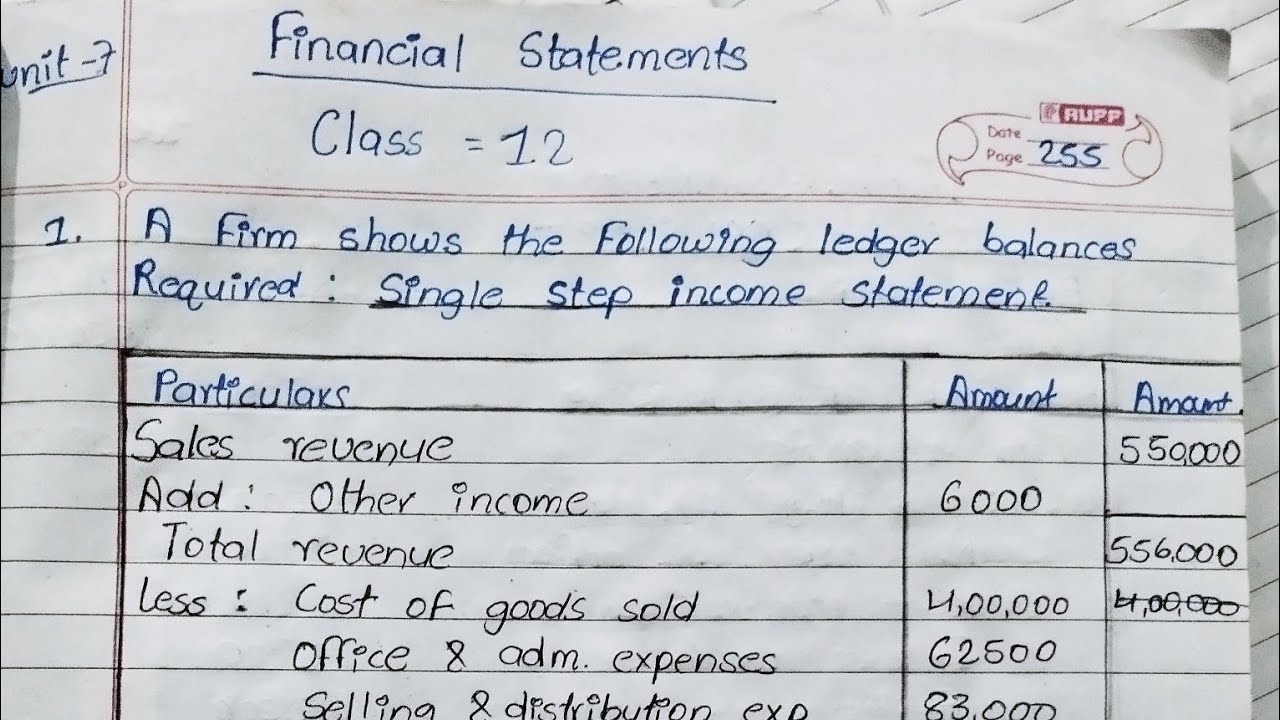 Unit-7
Financial Statements
Class = 12
RUPP
Date
Page 255
1. A Firm shows the Following ledger balances
Required : Single step income statement.
Particulars Amount Amount
Sales revenue 550,000
Add : Other income 6000
Total revenue 556,000
less : Cost of goods sold 4,00,000 4,00,000
Office & adm. expenses 62500
Selling & distribution exp 83,000